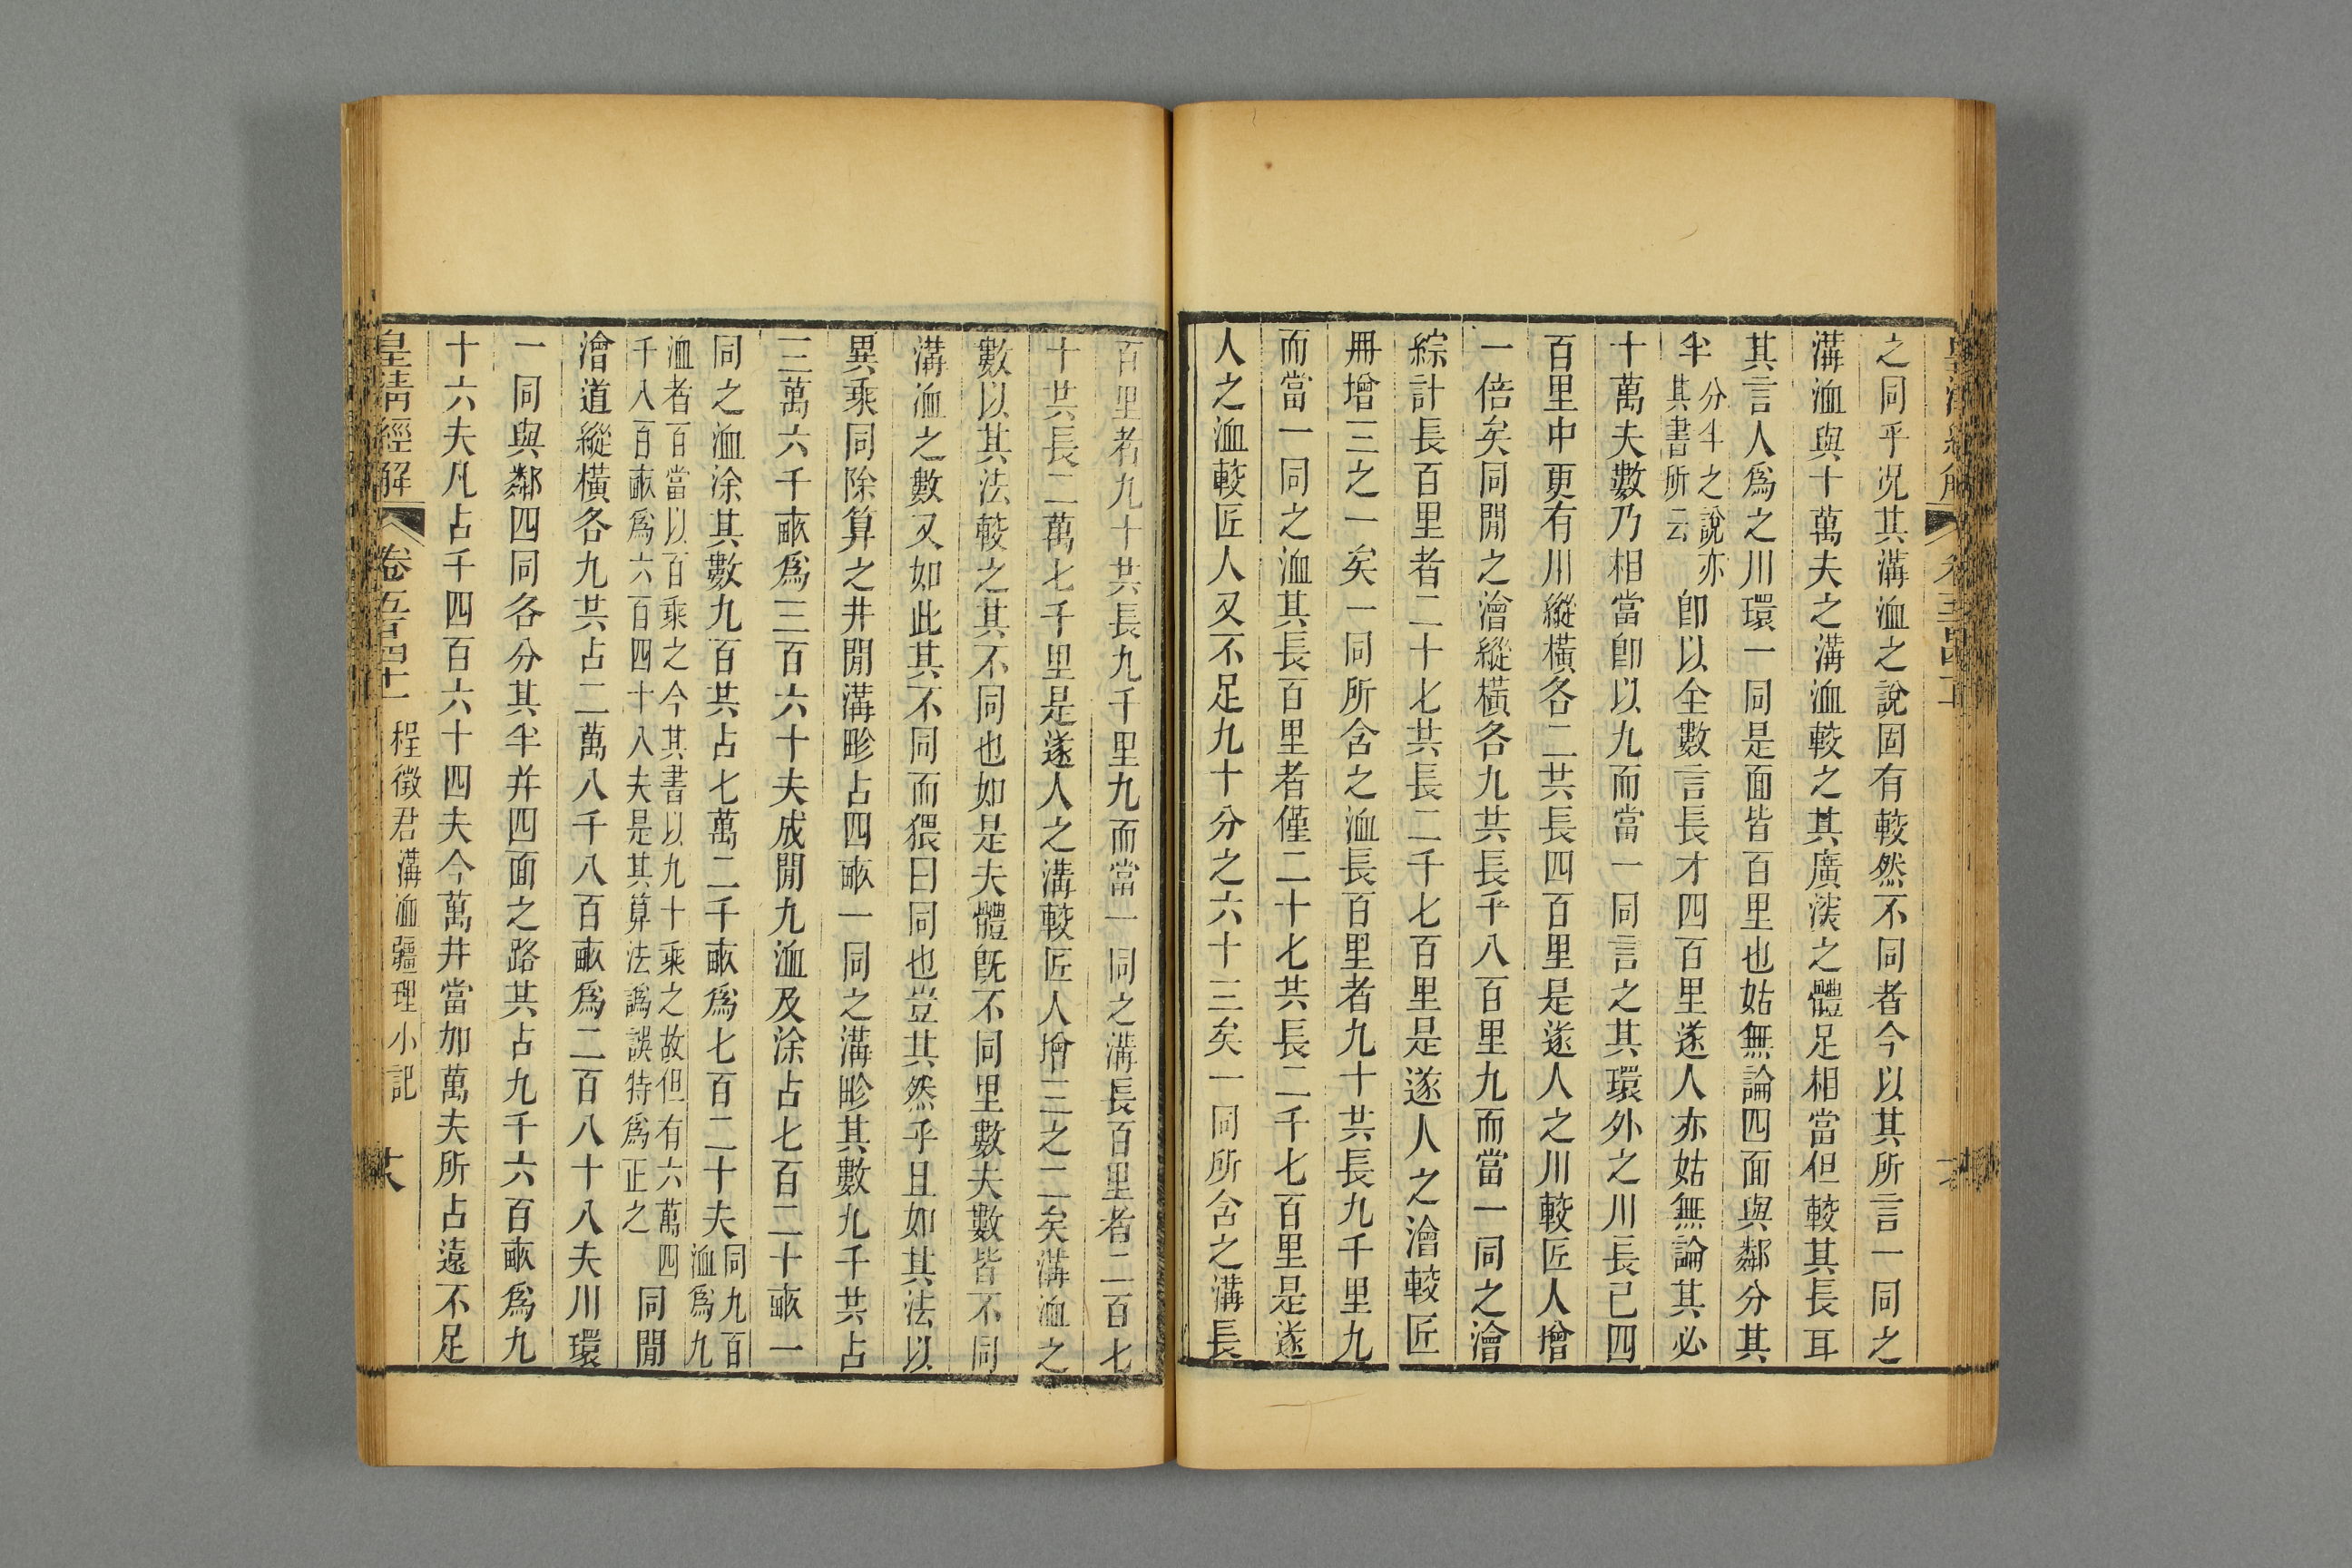 之同乎况其溝洫之說固有較然不同者今以其所言一同之
溝洫與十萬夫之溝洫較之其廣淺之體足相當但較其長耳
其言人爲之川環一同是面皆百里也姑無論四面與鄰分其
半
分半之說亦
其書所云
卽以全數言長才四百里遂人亦姑無論其必
十萬夫數乃相當卽以九而當一同言之其環外之川長已四
百里中更有川縱橫各二共長四百里是遂人之川較匠人增
一倍矣同閒之澮縱橫各九共長千八百里九而當一同之澮
綜計長百里者二十七共長二千七百里是遂人之澮較匠
人增三之一矣一同所含之洫長百里者九十共長九千里九
而當一同之洫其長百里者僅二十七共長二千七百里是遂
人之洫較匠人又不足九十分之六十三矣一同所含之溝長
百里者九十共長九千里九而當一同之溝長百里者二百七
十共長二萬七千里是遂人之溝較匠人增三之二矣溝洫之
數以其法較之其不同也如是夫體旣不同里數夫數皆不同
溝洫之數又如此其不同而猥曰同也豈其然乎且如其法以
異乘同除算之井閒溝畛占四畝一同之溝畛其數九千共占
三萬六千畝爲三百六十夫成閒九洫及涂占七百二十畝一
同之洫涂其數九百共占七萬二千畝爲七百二十夫
同九百
洫爲九
洫者百當以百乘之今其書以九十乘之故但有六萬四
千八百畝爲六百四十八夫是其算法譌誤特爲正之
同閒
澮道縱橫各九共占二萬八千八百畝爲二百八十八夫川環
一同與鄰四同各分其半并四面之路其占九千六百畝爲九
十六夫凡占千四百六十四夫今萬井當加萬夫所占遠不足
皇清經解
卷五百四十一
程徵君溝洫疆理小記